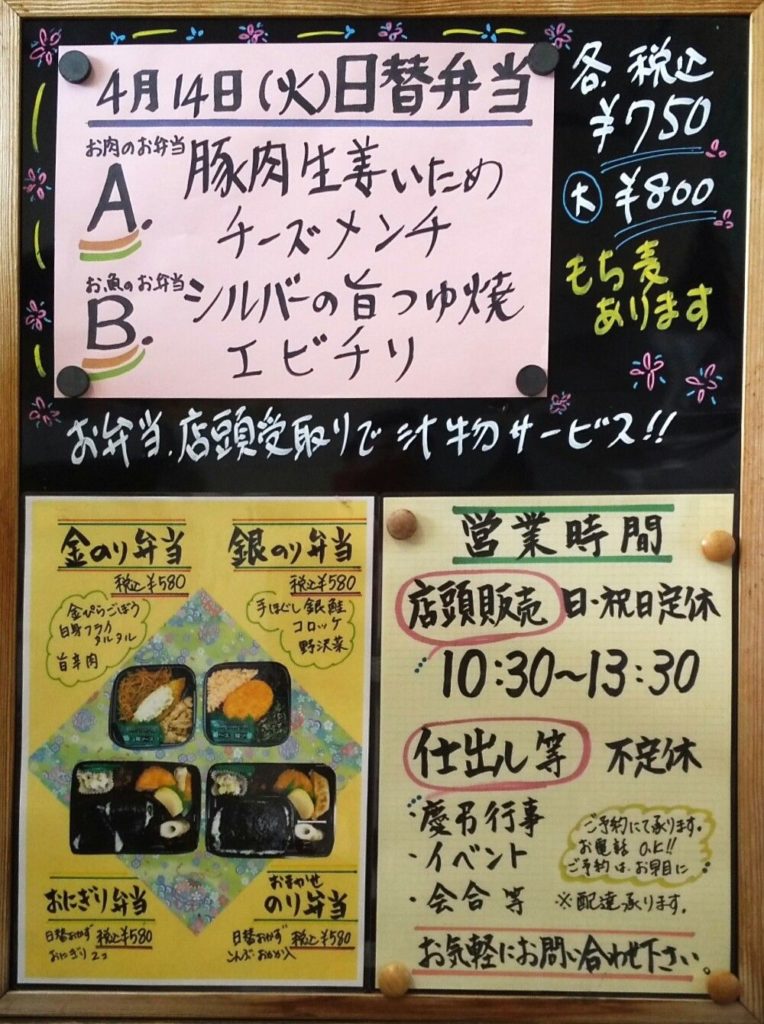 4月14日(火)日替弁当
お肉のお弁当
A. 豚肉生姜いため
チーズメンチ
お魚のお弁当
B. シルバーの旨つゆ焼
エビチリ
各税込
¥750
大 ¥800
もち麦
あります
お弁当、店頭受取りで汁物サービス!!
金のり弁当
税込¥580
金ぴらごぼう
白身フライ
タルタル
旨辛肉
銀のり弁当
税込¥580
手ほぐし銀鮭
コロッケ
野沢菜
おにぎり弁当
日替おかず 税込¥580
おにぎり2コ
おまかせ
のり弁当
日替おかず 税込¥580
こんぶ・おかか入
営業時間
店頭販売 日・祝日定休
10:30~13:30
仕出し等 不定休
・慶弔行事
・イベント
・会合等
ご予約にて承ります。
お電話 O.K!!
ご予約は、お早目に
※配達承ります。
お気軽にお問い合わせ下さい。